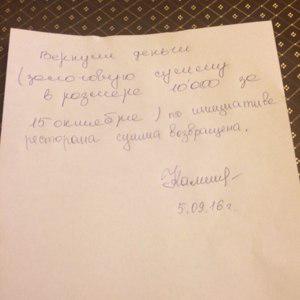 Вернули деньги
(залоговую сумму
в размере 10 000 за
15 октября) по инициативе
ресторана сумма возвращена.
5.09.16 г.